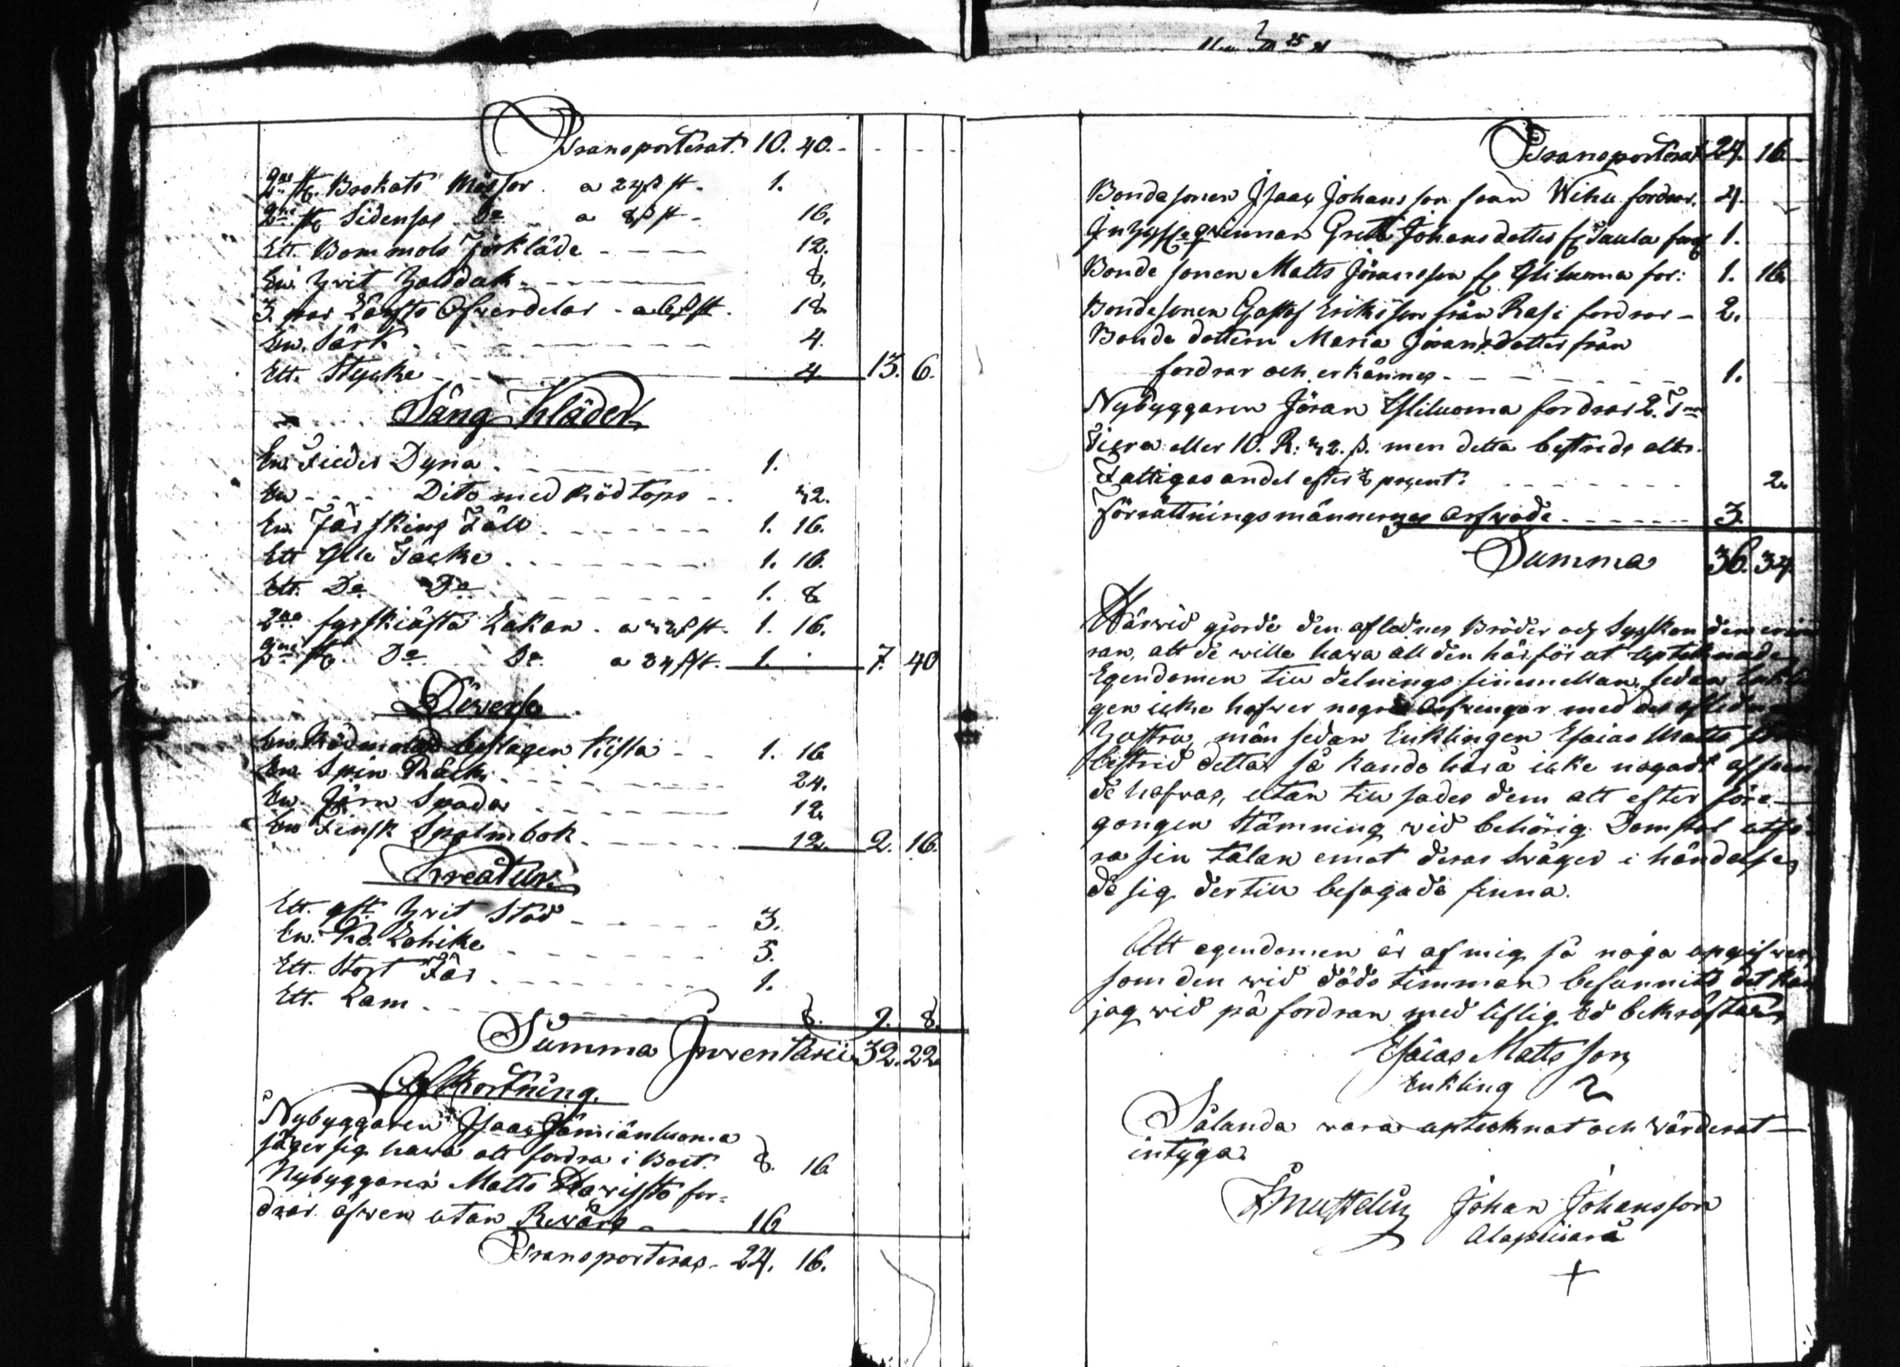 Transporterat. 10. 40.
2ne st. Brokats Mössor a 24 ß st. 1.
2ne st. Sidensar Do a 8 ß st. 16.
Ett Bommols Förkläde 12.
En hvit halsduk 8.
3. par Lärfts Öfverdelar a 6 ß st. 18
En Särk 4.
Ett Stycke 4. 13. 6.
Säng Kläder
En Fieder Dyna 1.
En Dito med Röd 32.
En Fårskins Fäll 1. 16.
Ett Ylle Täcke 1. 16.
Ett Do Do 1. 8
2ne Lakan a 32 ß st. 1. 16.
2ne st. Do Do a 24 ß st. 1. 7. 40
Diverse
En Rödmålad beslagen kista 1. 16
En Spin Råck 24.
En Järn Spada 12.
En Finsk Psalmbok 12. 2. 16.
Kreatur
Ett hvit Stod 3.
En Ko Lohike 5.
Ett Stort Får 1.
Ett Lam 8. 9. 8.
Summa Inventarii 32. 22
Afkortning.
Nybyggaren Isaac
säger sig hava att fordra i Boet. 8. 16
Nybyggaren Matts for-
drar äfven utan Revärs 16
Transporteras 24. 16.
Transporterat 24. 16
Bondesonen Isaac Johansson från fordrar. 4.
Inhyses qvinnan Greta Johansdotter fr. 1.
Bonde sonen Matts Jöransson fr. Yliluoma for: 1. 16.
Bondesonen Gustaf Eriksson från Rasi fordrar 2.
Bonde dottern Maria Jöransdotter från
fordrar och erkännes 1.
Nybyggaren Jöran Yliluoma fordrar 2. Tnr
Tiera eller 10. R: 32. ß. men detta bestreds
Fattigas andel efter procent. 2.
Förrättningsmännernes arfvode 3.
Summa 36. 34
Härvid gjorde den aflednes Bröder och Syskon den erin
ran, att de wille hava all den härför ut uptecknade
Egendomen till delnings sinnemellan, sedan Enklin
gen icke hafver några Arfvingar med des afledne
Hustru, män sedan Enklingen Esaias Matts son
bestrid detta, så kunde härå icke nogadt afseen
de hafvas, utan till sades dem att efter före
gången Stämning vid behörig Domstol utfö
ra sin talan emot deras Svåger i händelse
de sig dertill befogade finna.
Att egendomen är af mig så noga upgifven
som den wid döds timman befunnits det kan
jag wid på fordran med liflig Ed bekräfta
Esaias Matts Son
Enkling
Sålunda vara uptecknat och värderat
intyga.
Johan Johansson
Alapiisarå
+